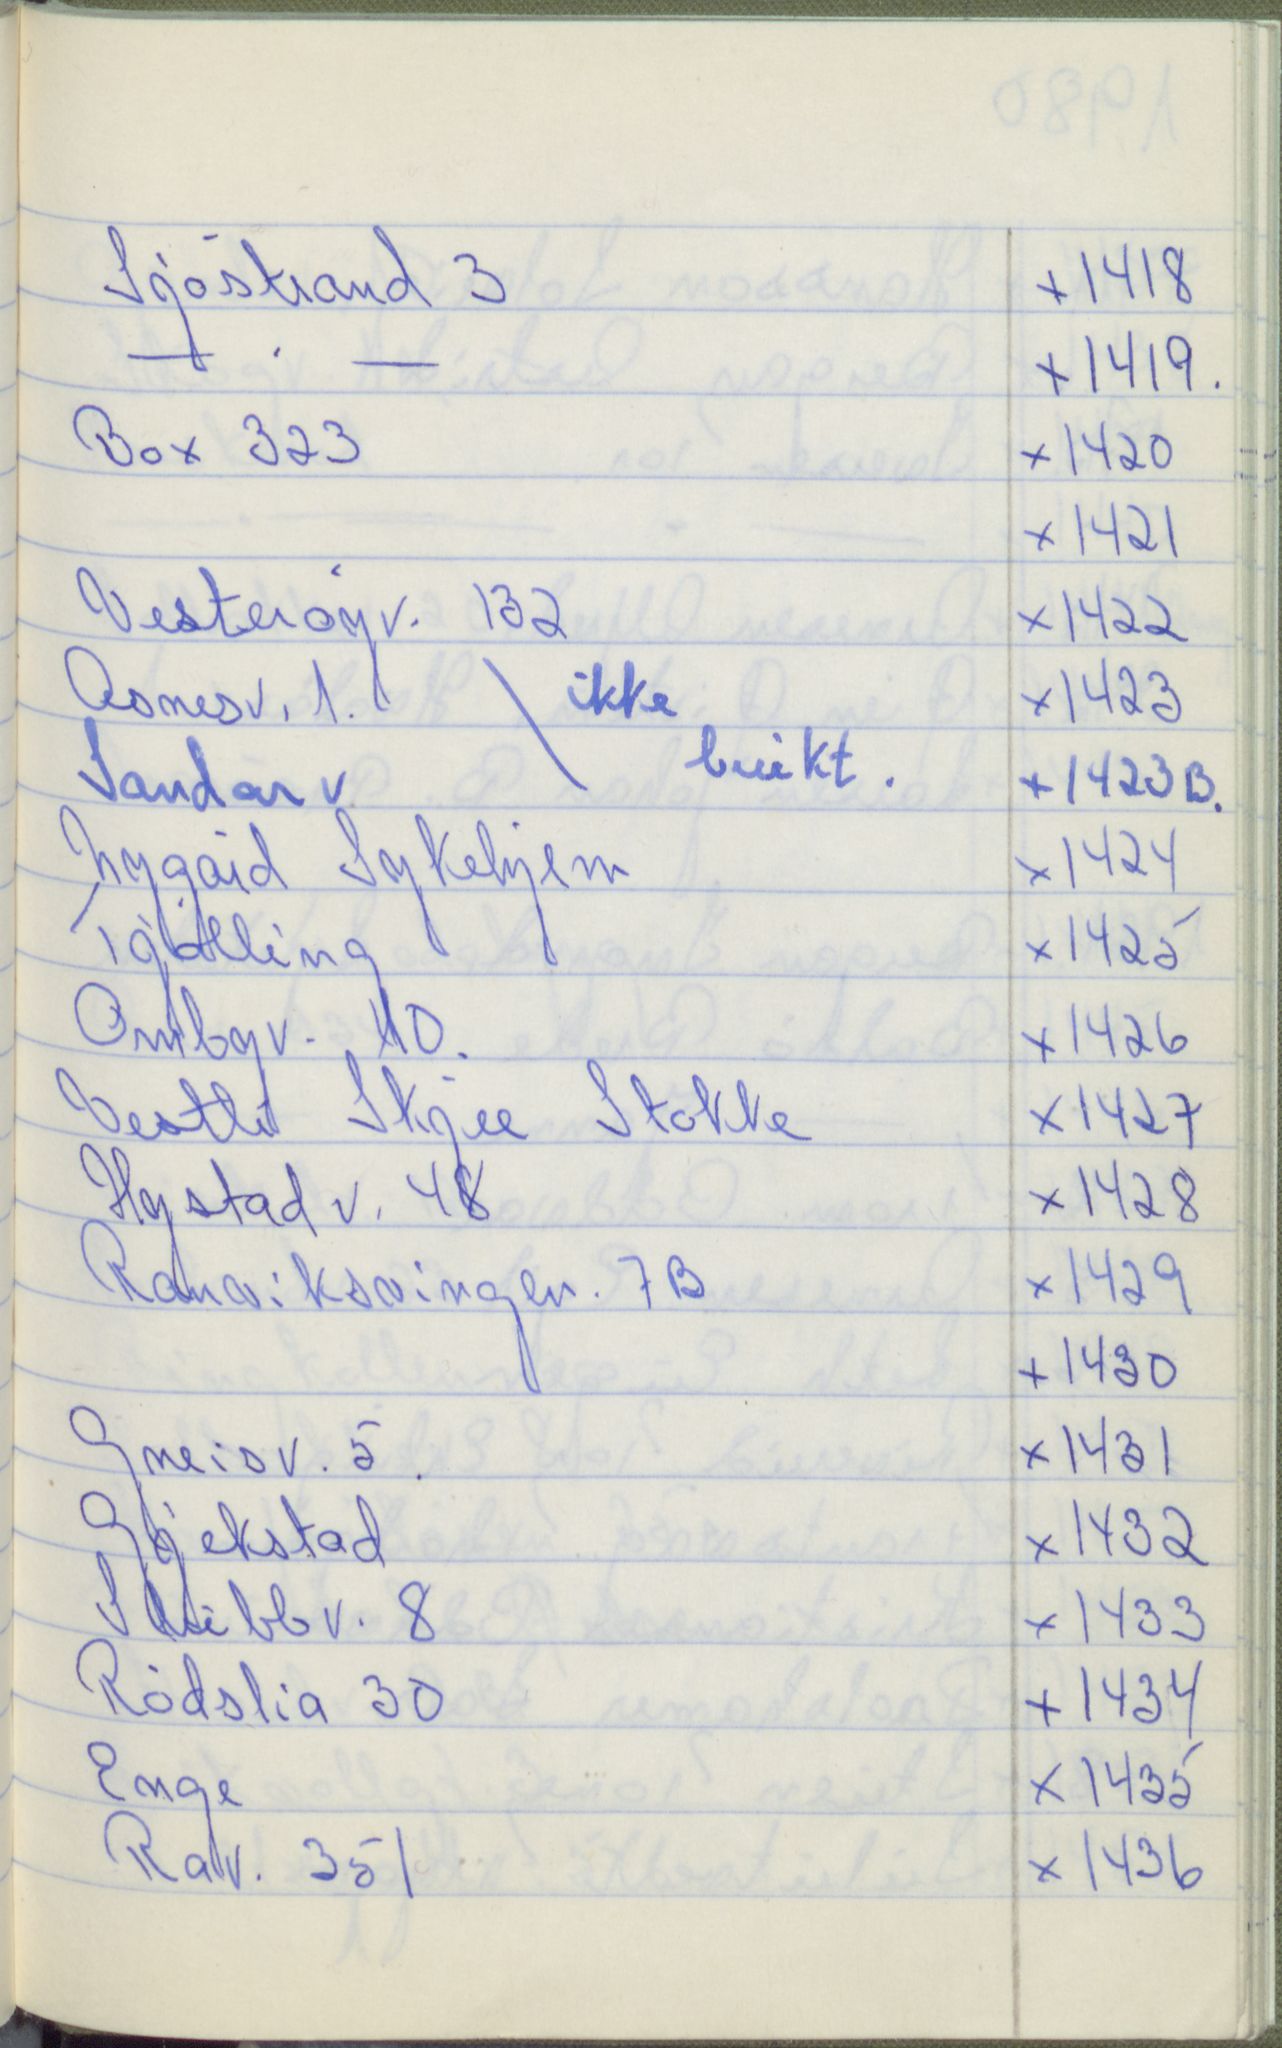 Sjöstrand 3 x 1418
— . — x 1419.
Box 323 x 1420
x 1421
Vesteröyv. 132 x 1422
Asnesv. 1. \ ikke x 1423
Sandar v. brukt. x 1423 B.
Nygård Sykehjem x 1424
Tjölling x 1425
Ombyv. 40. x 1426
Vestli Skjee Stokke x 1427
Hystad v. 48 x 1428
Ranviksvingen. 7B x 1429
x 1430
Gneisv. 5. x 1431
Gjekstad x 1432
v. 8 x 1433
Rödslia 30 x 1434
Enge x 1435
Rav. 351 x 1436